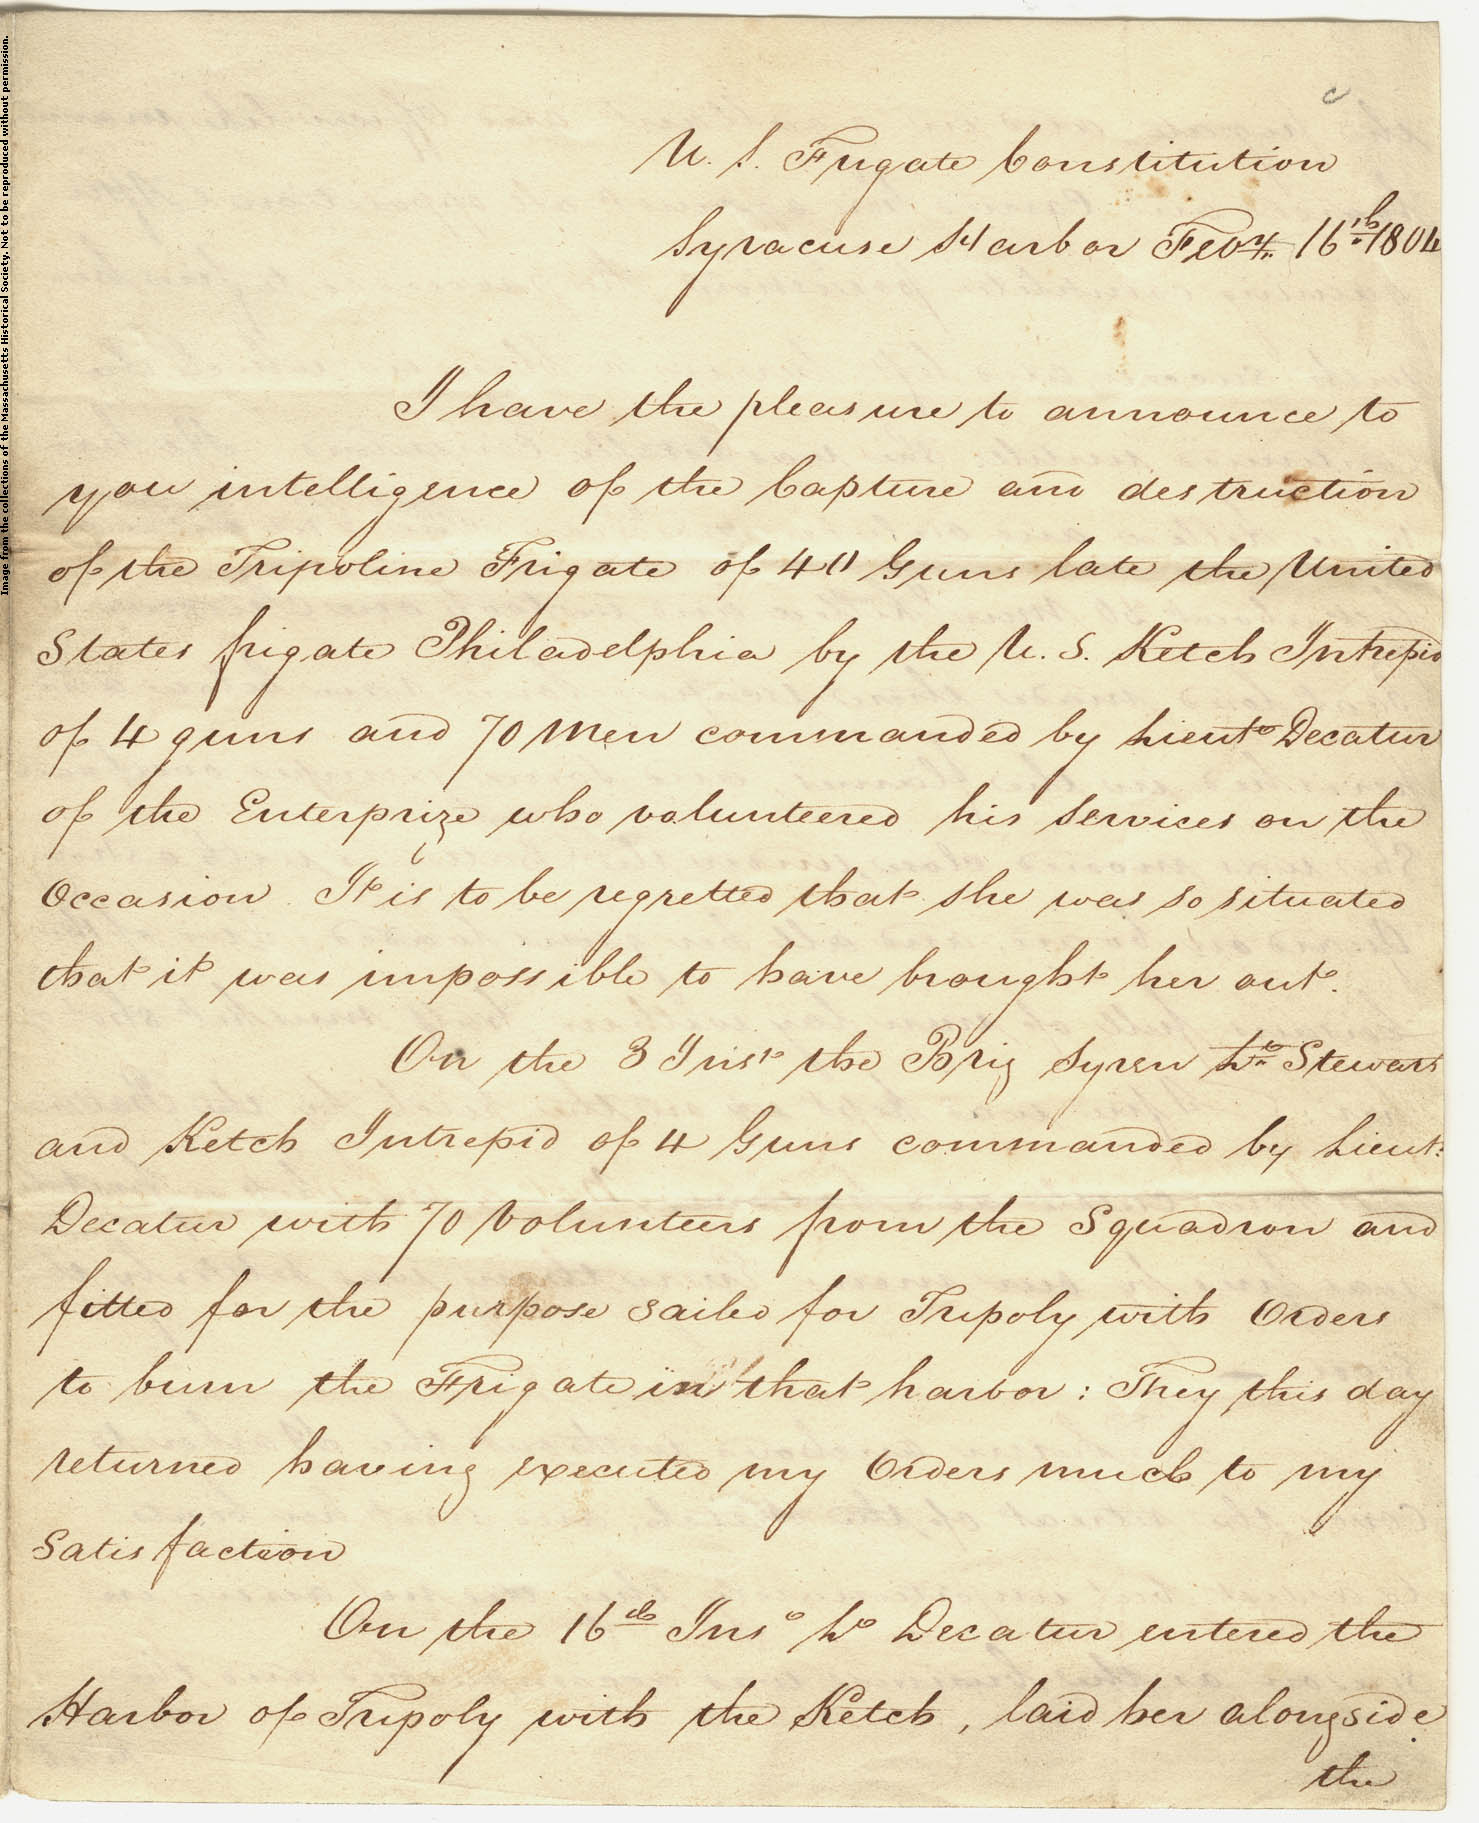 Image from the collections of the Massachusetts Historical Society. Not to be reproduced without permission.
U. S. Frigate Constitution
Syracuse Harbor Feby. 16th 1804
I have the pleasure to announce to
you intelligence of the Capture and destruction
of the Tripoline Frigate of 40 Guns late the United
States frigate Philadelphia by the U. S. Ketch Intrepid
of 4 guns and 70 Men commanded by Lieut Decatur
of the Enterprize who volunteered his Services on the
Occasion It is to be regretted that she was so situated
that it was impossible to have brought her out.
On the 3 Inst the Brig Syren Lt Stewart
and Ketch Intrepid of 4 Guns commanded by Lieut.
Decatur with 70 Volunteers from the Squadron and
fitted for the purpose Sailed for Tripoly with Orders
to burn the Frigate in that harbor: They this day
returned having executed my Orders much to my
Satisfaction
On the 16th Inso Lo Decatur entered the
Harbor of Tripoly with the Ketch, laid her alongside
the